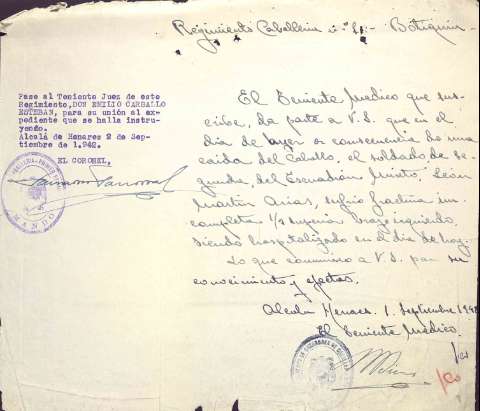 Regimiento Caballeria n.º - Botiquin -
Pase al Teniente Juez de este
Regimiento, DON EMILIO CARBALLO
ESTEBAN, para su unión al ex-
pediente que se halla instru-
yendo.
Alcalá de Henares 2 de Sep-
tiembre de 1.942.
EL CORONEL,
MANDO
El Teniente Medico que sus-
cribe, da parte a V.S. que en el
dia de ayer a consecuencia de una
caida del Caballo, el soldado de se-
gunda, del Escuadrón Mixto, León
Martin Arias, sufrió fractura in-
completa 1/3 superior brazo izquierdo,
siendo hospitalizado en el dia de hoy.
Lo que comunico a V.S. para su
conocimiento y efectos.
Alcalá Henares 1. Septiembre
El Teniente Médico.